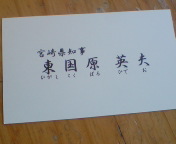 宮崎県知事
東国原 英夫
ひがしこくばる ひでお